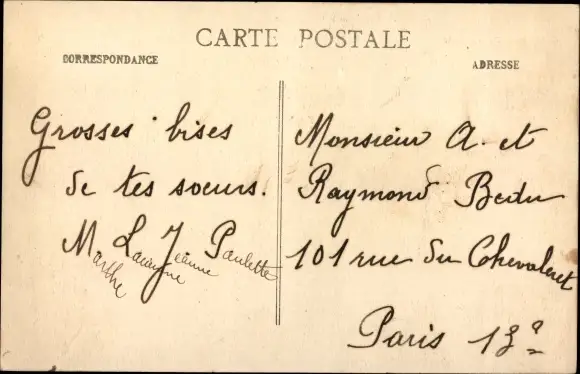 CARTE POSTALE
CORRESPONDANCE
ADRESSE
Grosses bises
de tes soeurs.
M. L J Paulette
Marthe Jeanne
Monsieur A. et
Raymond Bedu
101 rue du Chevaleret
Paris 13e